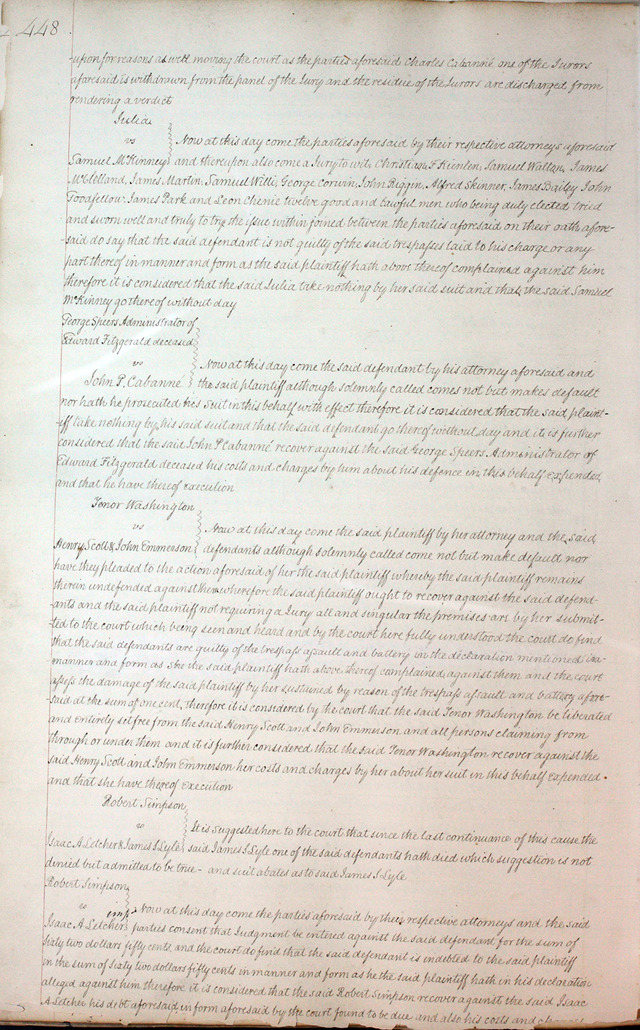 448
upon for reasons as well moving the court as the parties aforesaid Charles Cabanné one of the Jurors
aforesaid is withdrawn from the panel of the Jury and the residue of the Jurors are discharged from
rendering a verdict
Julia
vs
Now at this day come the parties aforesaid by their respective attorneys aforesaid
Samuel McKinney and thereupon also come a Jury to wit, Christian F Kienlen, Samuel Walton, James
McClelland, James Martin, Samuel Willi, George Corwin, John Riggin, Alfred Skinner, James Dailey John
James Park and Leon Chenie twelve good and lawful men who being duly elected tried
and sworn well and truly to try the issue within joined between the parties aforesaid on their oath afore-
said do say that the said defendant is not guilty of the said trespasses laid to his charge or any
part thereof in manner and form as the said plaintiff hath above thereof complained against him
therefore it is considered that the said Julia take nothing by her said suit and that the said Samuel
McKinney go thereof without day
George Speers Administrator of
Edward Fitzgerald deceased
vs
Now at this day come the said defendant by his attorney aforesaid and
John P. Cabanné the said plaintiff although solemnly called comes not but makes default
nor hath he prosecuted his suit in this behalf with effect therefore it is considered that the said plaint-
iff take nothing by his said suit and that the said defendant go thereof without day and it is further
considered that the said John P Cabanné recover against the said George Speers Administrator of
Edward Fitzgerald deceased his costs and charges by him about his defence in this behalf expended
and that he have thereof execution
Tenor Washington
vs
Now at this day come the said plaintiff by her attorney and the said
Henry Scott & John Emmerson defendants although solemnly called come not but make default nor
have they pleaded to the action aforesaid of her the said plaintiff whereby the said plaintiff remains
therein undefended against them wherefore the said plaintiff ought to recover against the said defend-
ants and the said plaintiff not requiring a Jury all and singular the premises are by her submit-
ted to the court which being seen and heard and by the court here fully understood the court do find
that the said defendants are guilty of the trespass assault and battery in the declaration mentioned in
manner and form as she the said plaintiff hath above thereof complained against them and the court
assess the damage of the said plaintiff by her sustained by reason of the trespass assault and battery afore-
said at the sum of one cent, therefore it is considered by the court that the said Tenor Washington be liberated
and entirely set free from the said Henry Scott and John Emmerson and all persons claiming from
through or under them and it is further considered that the said Tenor Washington recover against the
said Henry Scott and John Emmerson her costs and charges by her about her suit in this behalf expended
and that she have thereof execution
Robert Simpson
vs
It is suggested here to the court that since the last continuance of this cause the
Isaac A Letcher & James S Lyle said James S Lyle one of the said defendants hath died which suggestion is not
denied but admitted to be true - and suit abates as to said James S Lyle
Robert Simpson
vs
Now at this day come the parties aforesaid by their respective attorneys and the said
Isaac A Letcher parties consent that Judgment be entered against the said defendant for the sum of
Sixty two dollars fifty cents and the court do find that the said defendant is indebted to the said plaintiff
in the sum of Sixty two dollars fifty cents in manner and form as he the said plaintiff hath in his declaration
alleged against him therefore it is considered that the said Robert Simpson recover against the said Isaac
A Letcher his debt aforesaid in form aforesaid by the court found to be due and also his costs and charges